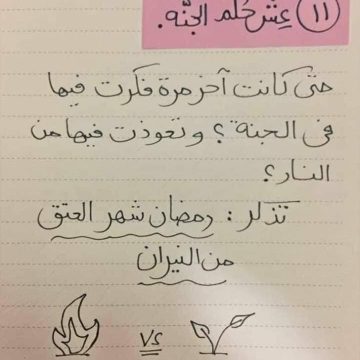 ١١ عِش حُلم الجنَّه.
حتى كانت آخر مرة فكرت فيها
فى الجنة؟ وتعوذت فيها من
النار؟
تذكر: رمضان شهر العتق
من النيران
vs